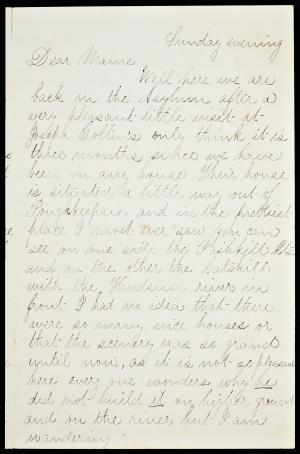 Sunday evening
Dear Mame
Well here we are
back in the Asylum after a
very pleasant little visit at
Joseph Collin's only think it is
three months since we have
been in any house Their house
is situated a little way out of
Poughkeepsie and in the prettiest
place I most ever saw you can
see on one side the Fishkill Mts
and on the other the Catskill
with the Hudson river in
front I had no idea that there
were so many nice houses or
that the scenery was so grand
until now, as it is not so pleasant
here every one wonders why he
did not build it on higher ground
and on the river but I am
wandering